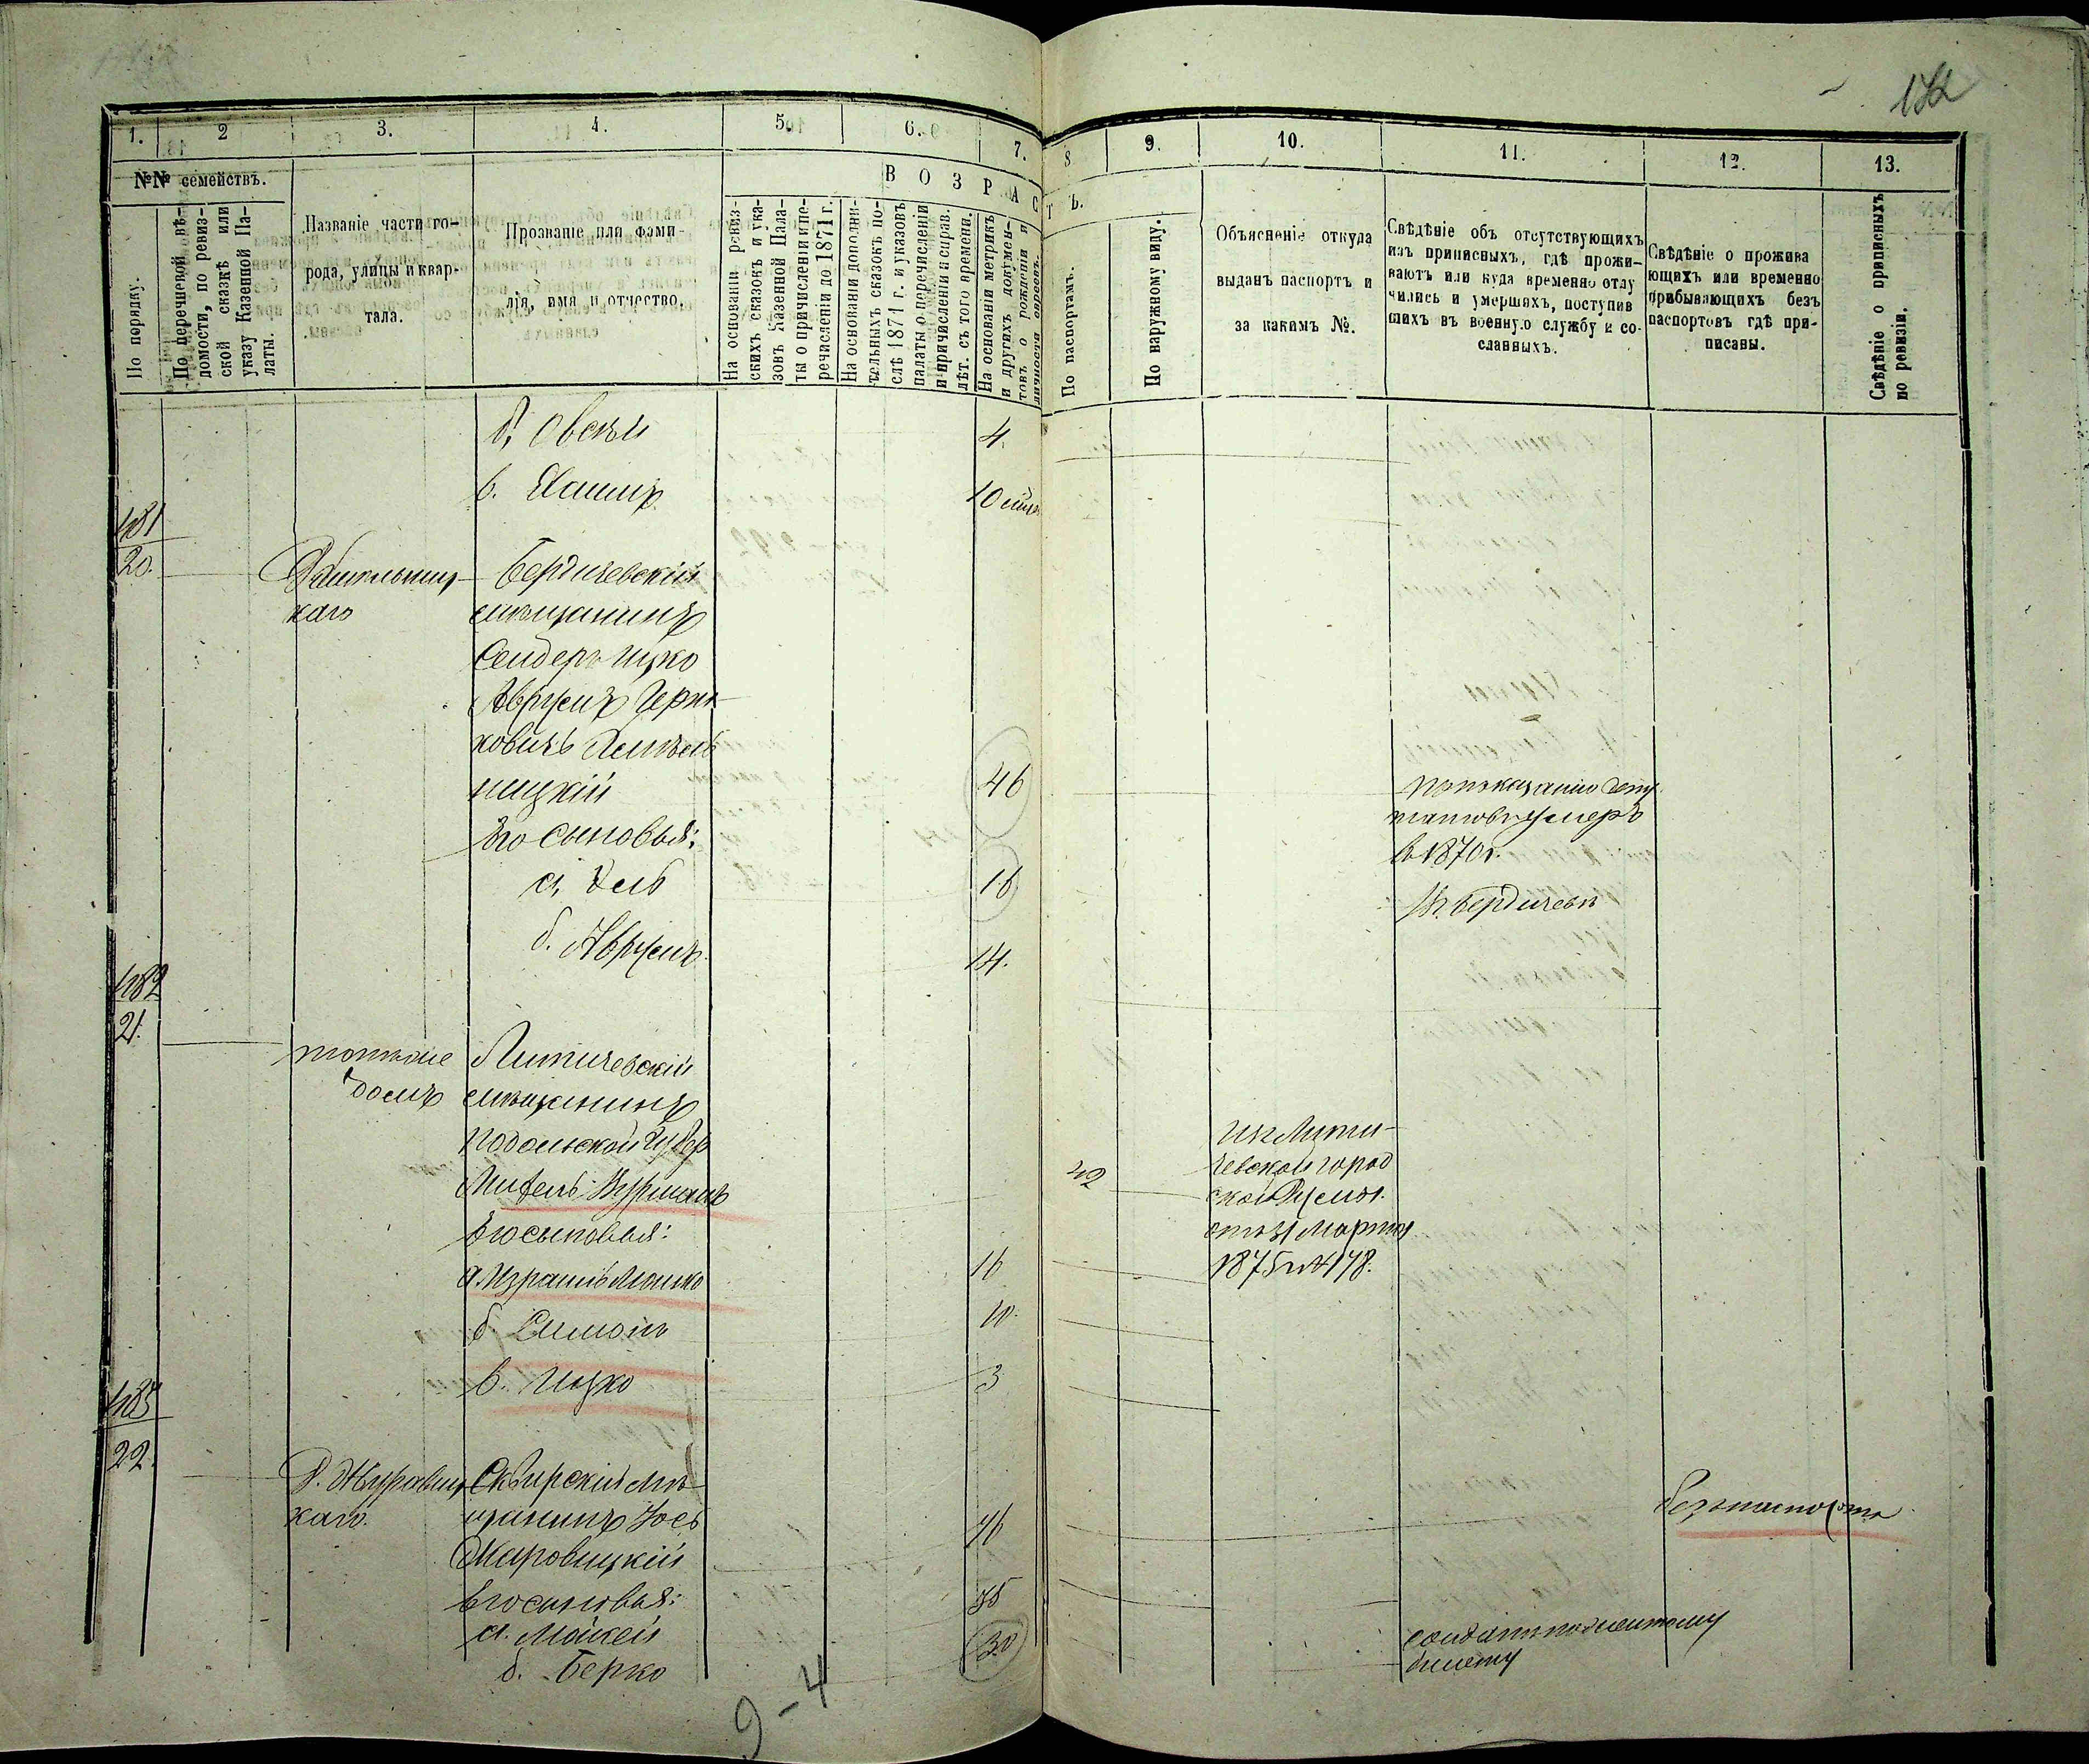 172
1. 2 3. 4. 5. 6. 7. 8 9. 10. 11. 12. 13.
№№ семействъ.
В О З Р А С Т Ъ.
По порядку.
По перечневой вѣ-
домости, по ревиз-
ской сказкѣ или
указу Казенной Па-
латы.
Названіе части го-
рода, улицы и квар-
тала.
Прозваніе или фами-
лія, имя и отчество.
На основаніи ревиз-
скихъ сказокъ и ука-
зовъ Казенной Пала-
ты о причисленіи и пе-
речисленіи до 1871 г.
На основаніи дополни-
тельныхъ сказокъ по-
слѣ 1871 г. и указовъ
палаты о перечисленіи
и причисленіи и справ.
лѣт. съ того времени.
На основаніи метрикъ
и другихъ докумен-
товъ о рожденіи и
личности евреевъ.
По паспортамъ.
По наружному виду.
Объясненіе откуда
выданъ паспортъ и
за какимъ №.
Свѣдѣніе объ отсутствующихъ
изъ приписныхъ, гдѣ прожи-
ваютъ или куда временно отлу
чились и умершихъ, поступив
шихъ въ военную службу и со-
сланныхъ.
Свѣдѣніе о прожива
ющихъ или временно
прибывающихъ безъ
паспортовъ гдѣ при-
писаны.
Свѣдѣніе о приписныхъ
по ревизіи.
б. Овсѣй 4.
в. 10 мѣс
481
20.
каго
Бердичевскій
мѣщанинъ
Сендеръ Ицко
Аврумъ Герш-
ковичъ
ницкій 46
По показанію
умеръ
въ 1870 г.
Его сыновья:
а, 16
въ Бердичевѣ
б. Аврумъ 14.
482
21.
тотже
домъ
Литичевскій
мѣщанинъ
Подольской Губер
Фурманъ 42
изъ Лити-
чевской город
ской Думы
отъ 31 Марта
1875 г. № 178.
Его сыновья:
а. Израиль Мошко 16
б. Симонъ 10.
в. Ицко 3
483
22.
Д. Журавиц
каго.
Сквирскій мѣ-
щанинъ Іось
Маровицкій 76
безъ паспорта
Его сыновья:
а. Мойсей 35
б. Берко 30
солдатъ
билету
9-4